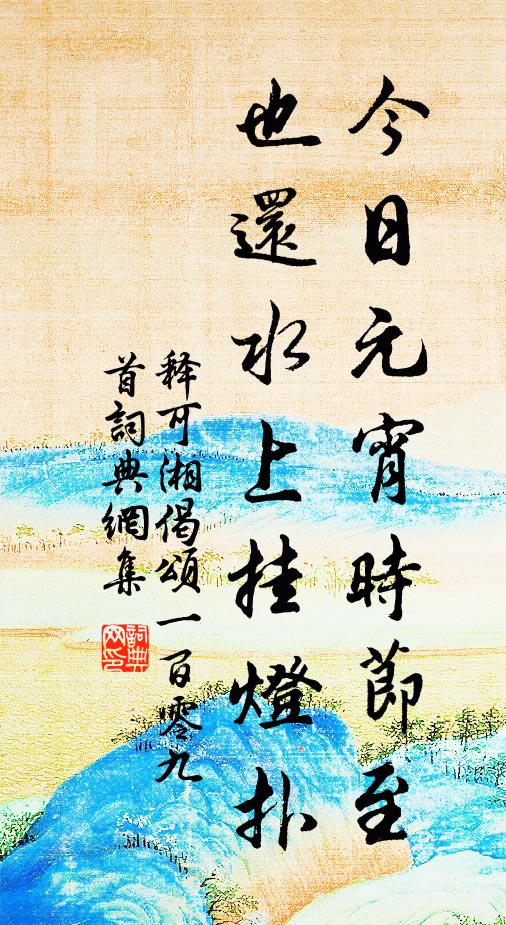 今日元宵時節至
也還水上挂燈扑
释可湘偈頌一百零九
首詞典網集
詞典
网印